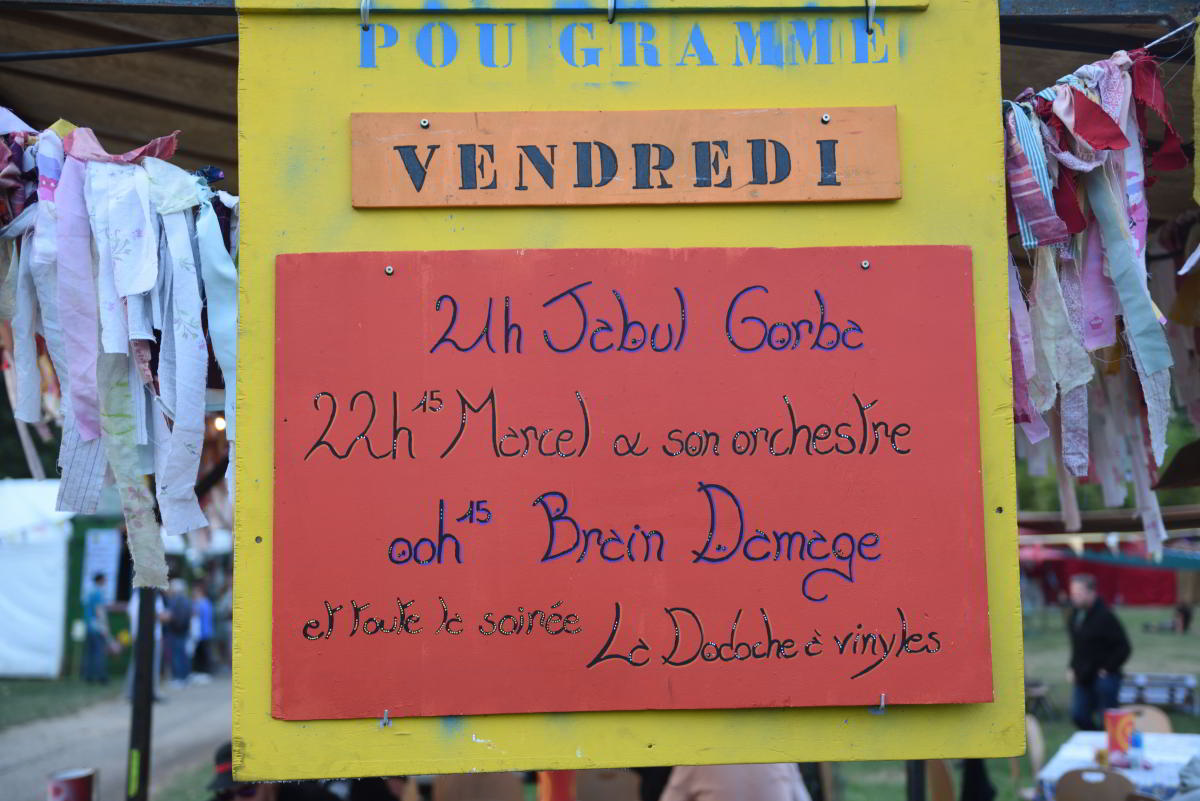 POU GRAMME
VENDREDI
21h Jabul Gorba
22h15 Marcel & son orchestre
00h15 Brain Damage
et toute la soirée La Dodoche à vinyles